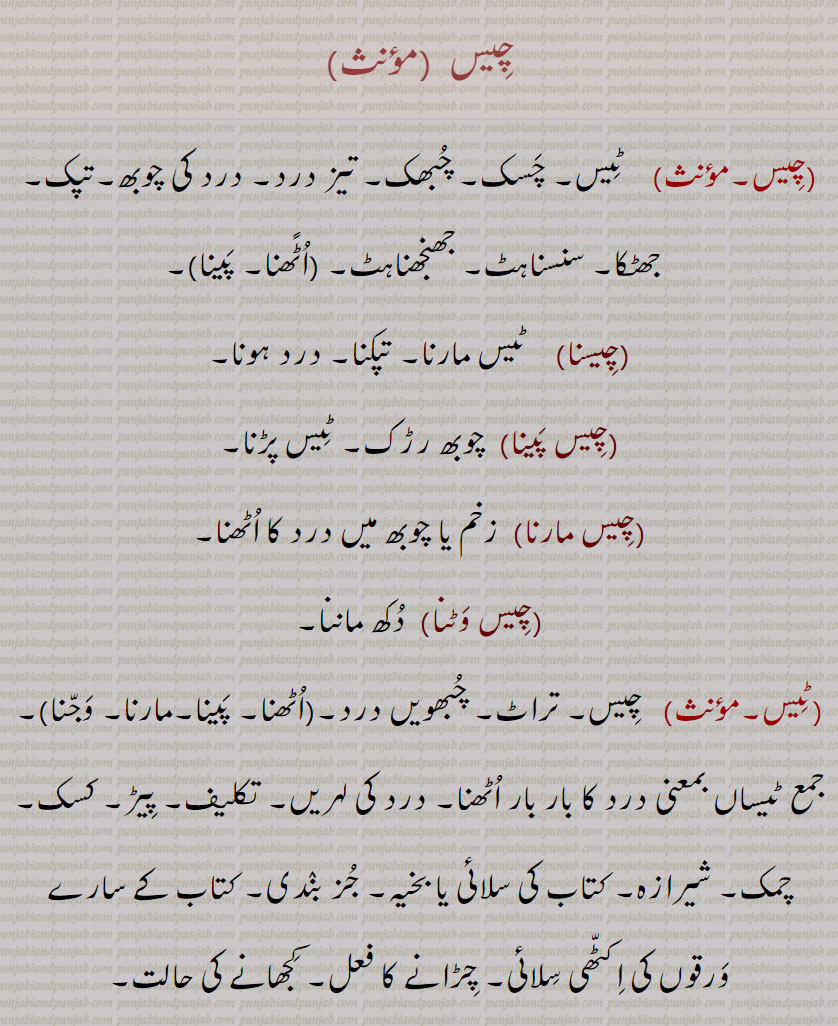 چِیس (مؤنث)
(چِیس۔مؤنث) ٹِیس۔ چَسک۔ چُبھک۔ تیز درد۔ درد کی چوبھ۔تپک۔
جھٹکا۔ سنسناہٹ۔ جھنجھناہٹ۔ (اُٹھنا۔ پَینا)۔
(چِیسنا) ٹیس مارنا۔ تپکنا۔ درد ہونا۔
(چِیس پَینا) چوبھ رڑک۔ ٹِیس پڑنا۔
(چِیس مارنا) زخم یا چوبھ میں درد کا اُٹھنا۔
(چِیس وَٹنا) دُکھ ماننا۔
(ٹِیس۔مؤنث) چِیس۔ تراٹ۔ چُبھویں درد۔(اُٹھنا۔ پَینا۔مارنا۔ وَجّنا)۔
جمع ٹیساں بمعنی درد کا بار بار اُٹھنا۔ درد کی لہریں۔ تکلیف۔ پِیڑ۔ کسک۔
چمک۔ شیرازہ۔ کتاب کی سلائی یا بخیہ۔ جُز بنْدی۔ کتاب کے سارے
وَرقوں کی اِکٹّھی سِلائی۔ چِڑانے کا فعل۔ کَھِجھانے کی حالت۔
punjabiandpunjab.com